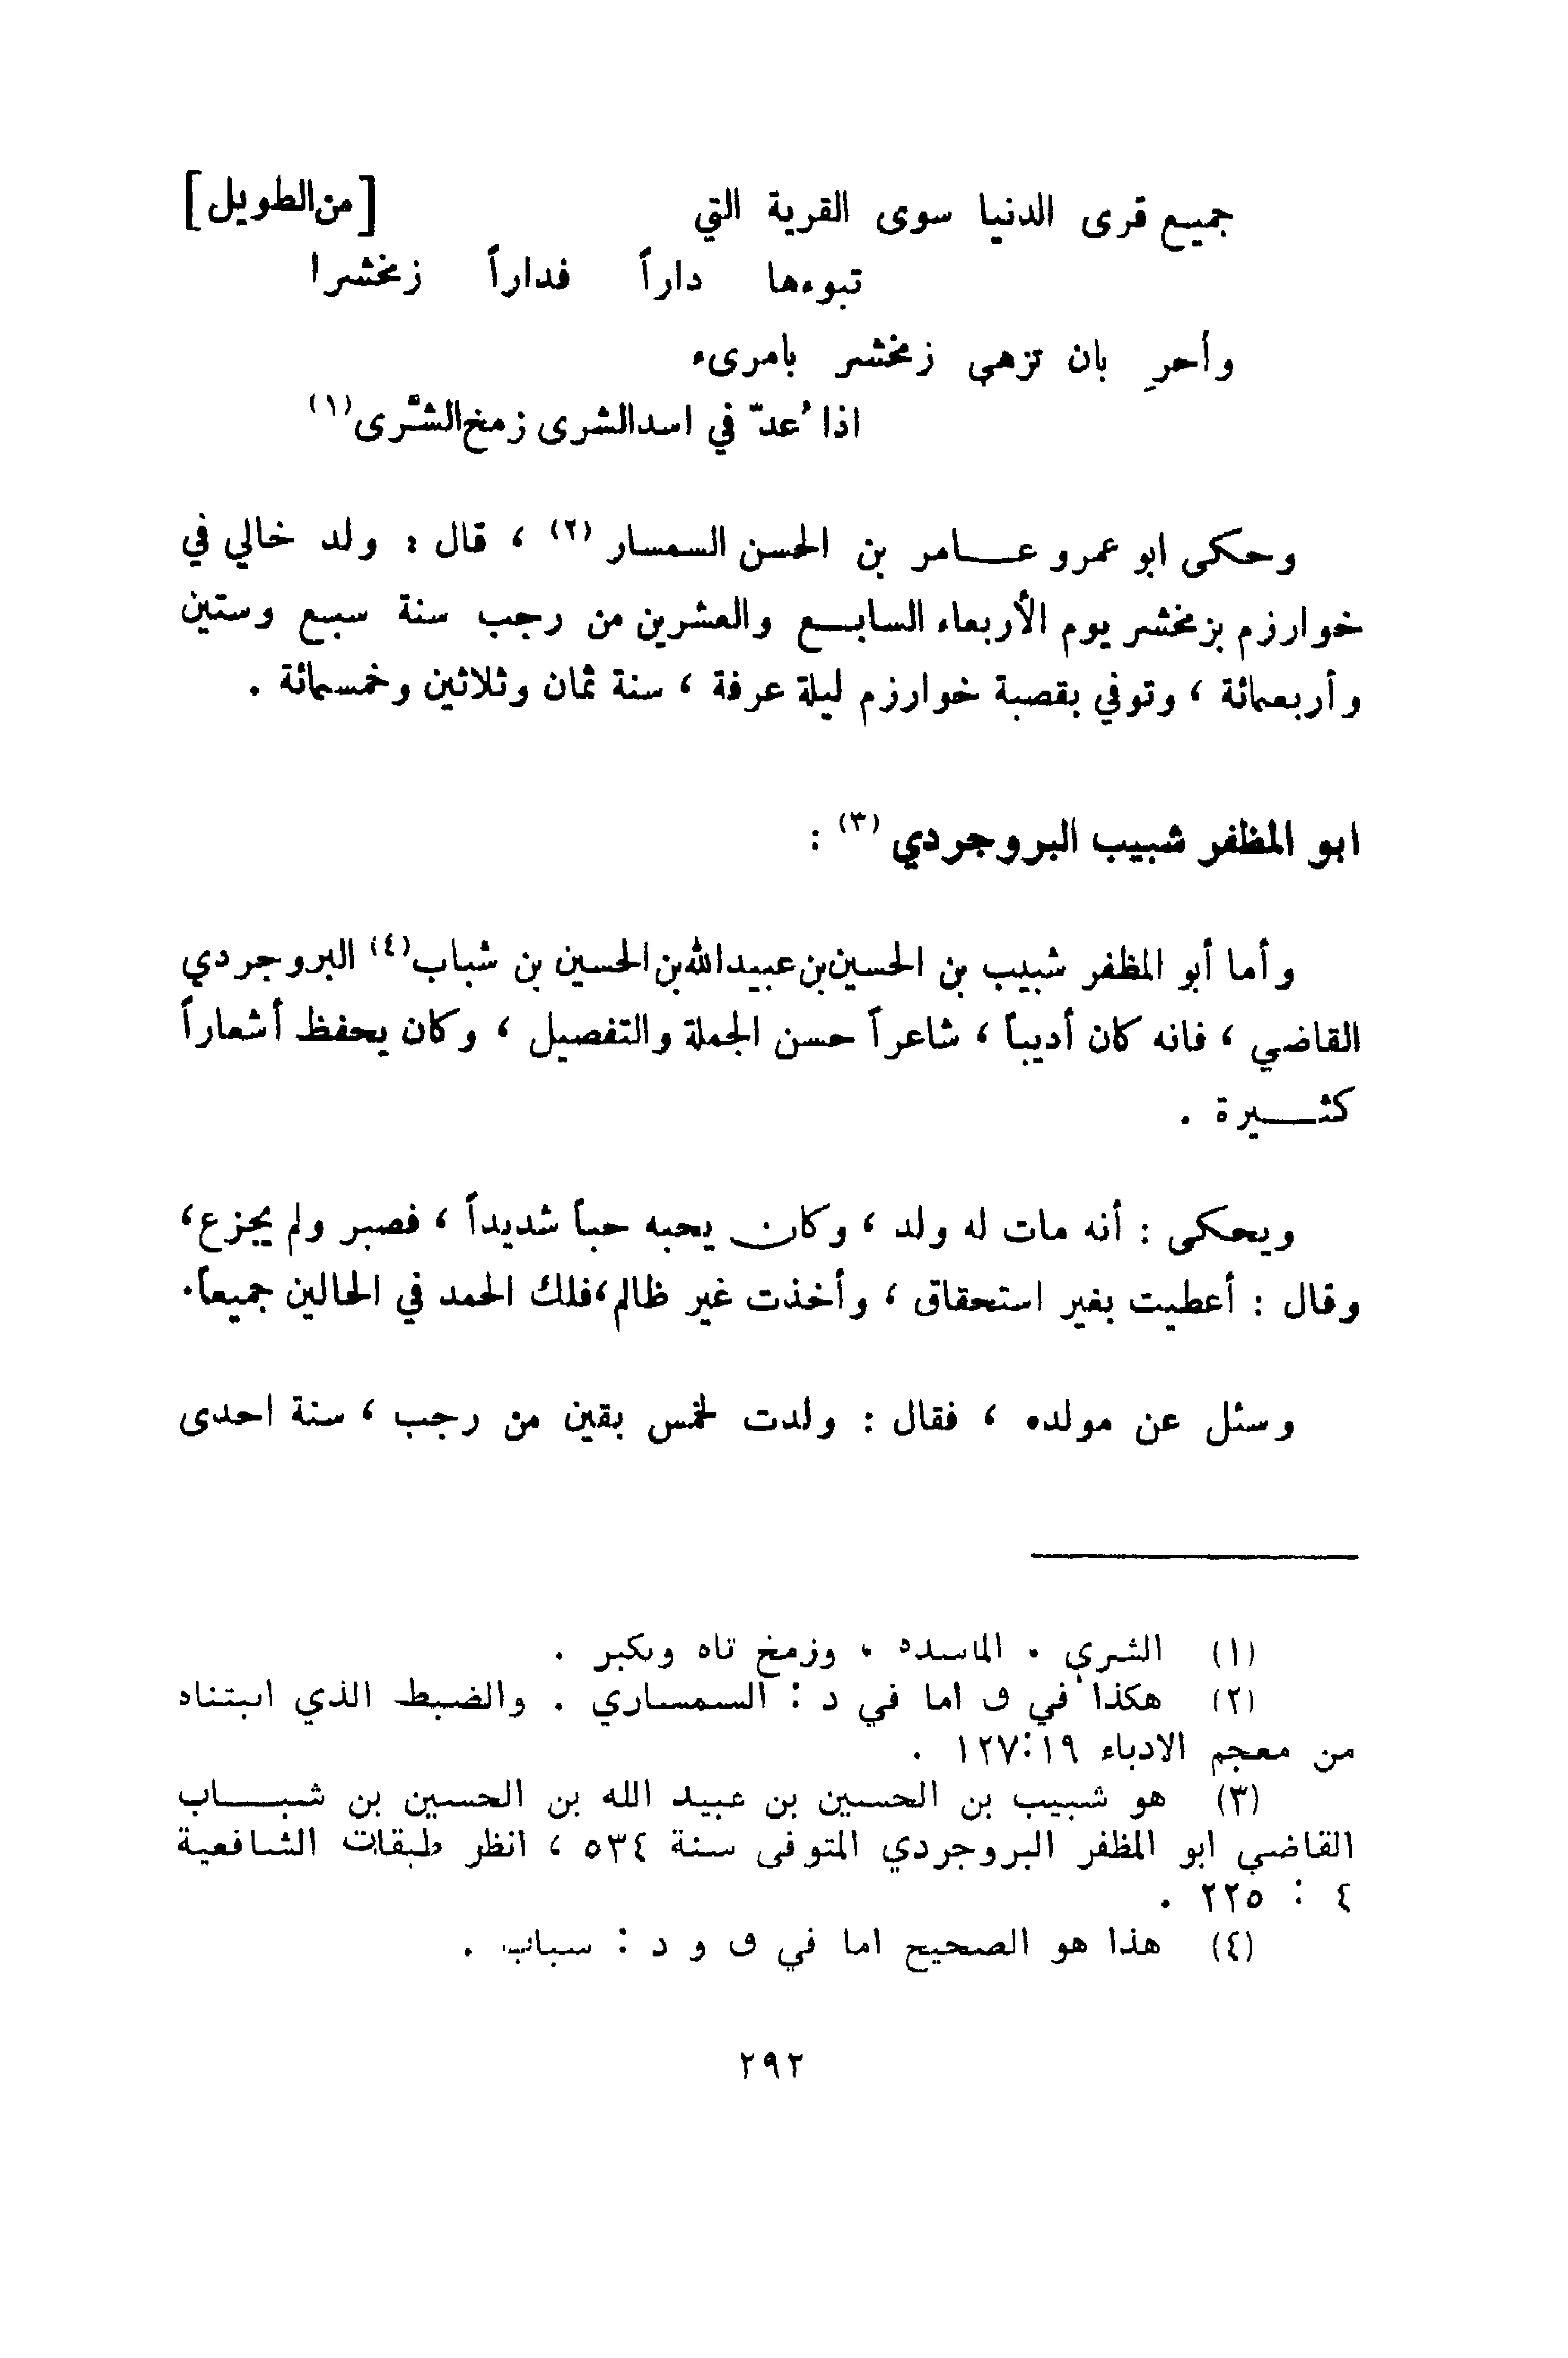 جميع قرى الدنيا سوى القرية التي [من الطويل]
تبوءها داراً فداراً زمخشرا
وأحرِ بان تزهى زمخشر بامرىء
اذا عُدّ في اسد الشرى زمخ الشّرى (١)
وحكى ابو عمرو عــامر بن الحسن السمسار (٢) ، قال : ولد خالي في
خوارزم بزمخشر يوم الأربعاء السابـع والعشرين من رجب سنة سبع وستين
وأربعمائة ، وتوفي بقصبة خوارزم ليلة عرفة ، سنة ثمان وثلاثين وخمسمائة .
ابو المظفر شبيب البروجردي (٣) :
وأما أبو المظفر شبيب بن الحسين بن عبيد الله بن الحسين بن شباب (٤) البروجردي
القاضي ، فانه كان أديباً ، شاعراً حسن الجملة والتفصيل ، وكان يحفظ أشعاراً
كثــيرة .
ويحكى : أنه مات له ولد ، وكان يحبه حباً شديداً ، فصبر ولم يجزع ،
وقال : أعطيت بغير استحقاق ، وأخذت غير ظالم ، فلك الحمد في الحالين جميعاً .
وسئل عن مولده ، فقال : ولدت لخمس بقين من رجب ، سنة احدى
(١) الشرى . الماسدة . وزمخ تاه وتكبر .
(٢) هكذا في ق اما في د : السمساري . والضبط الذي اثبتناه
من معجم الادباء ١٩:١٢٧ .
(٣) هو شبيب بن الحسين بن عبيد الله بن الحسين بن شبــاب
القاضي ابو المظفر البروجردي المتوفى سنة ٥٣٤ ، انظر طبقات الشافعية
٤ : ٢٢٥ .
(٤) هذا هو الصحيح اما في ق و د : سباب .
٢٩٢